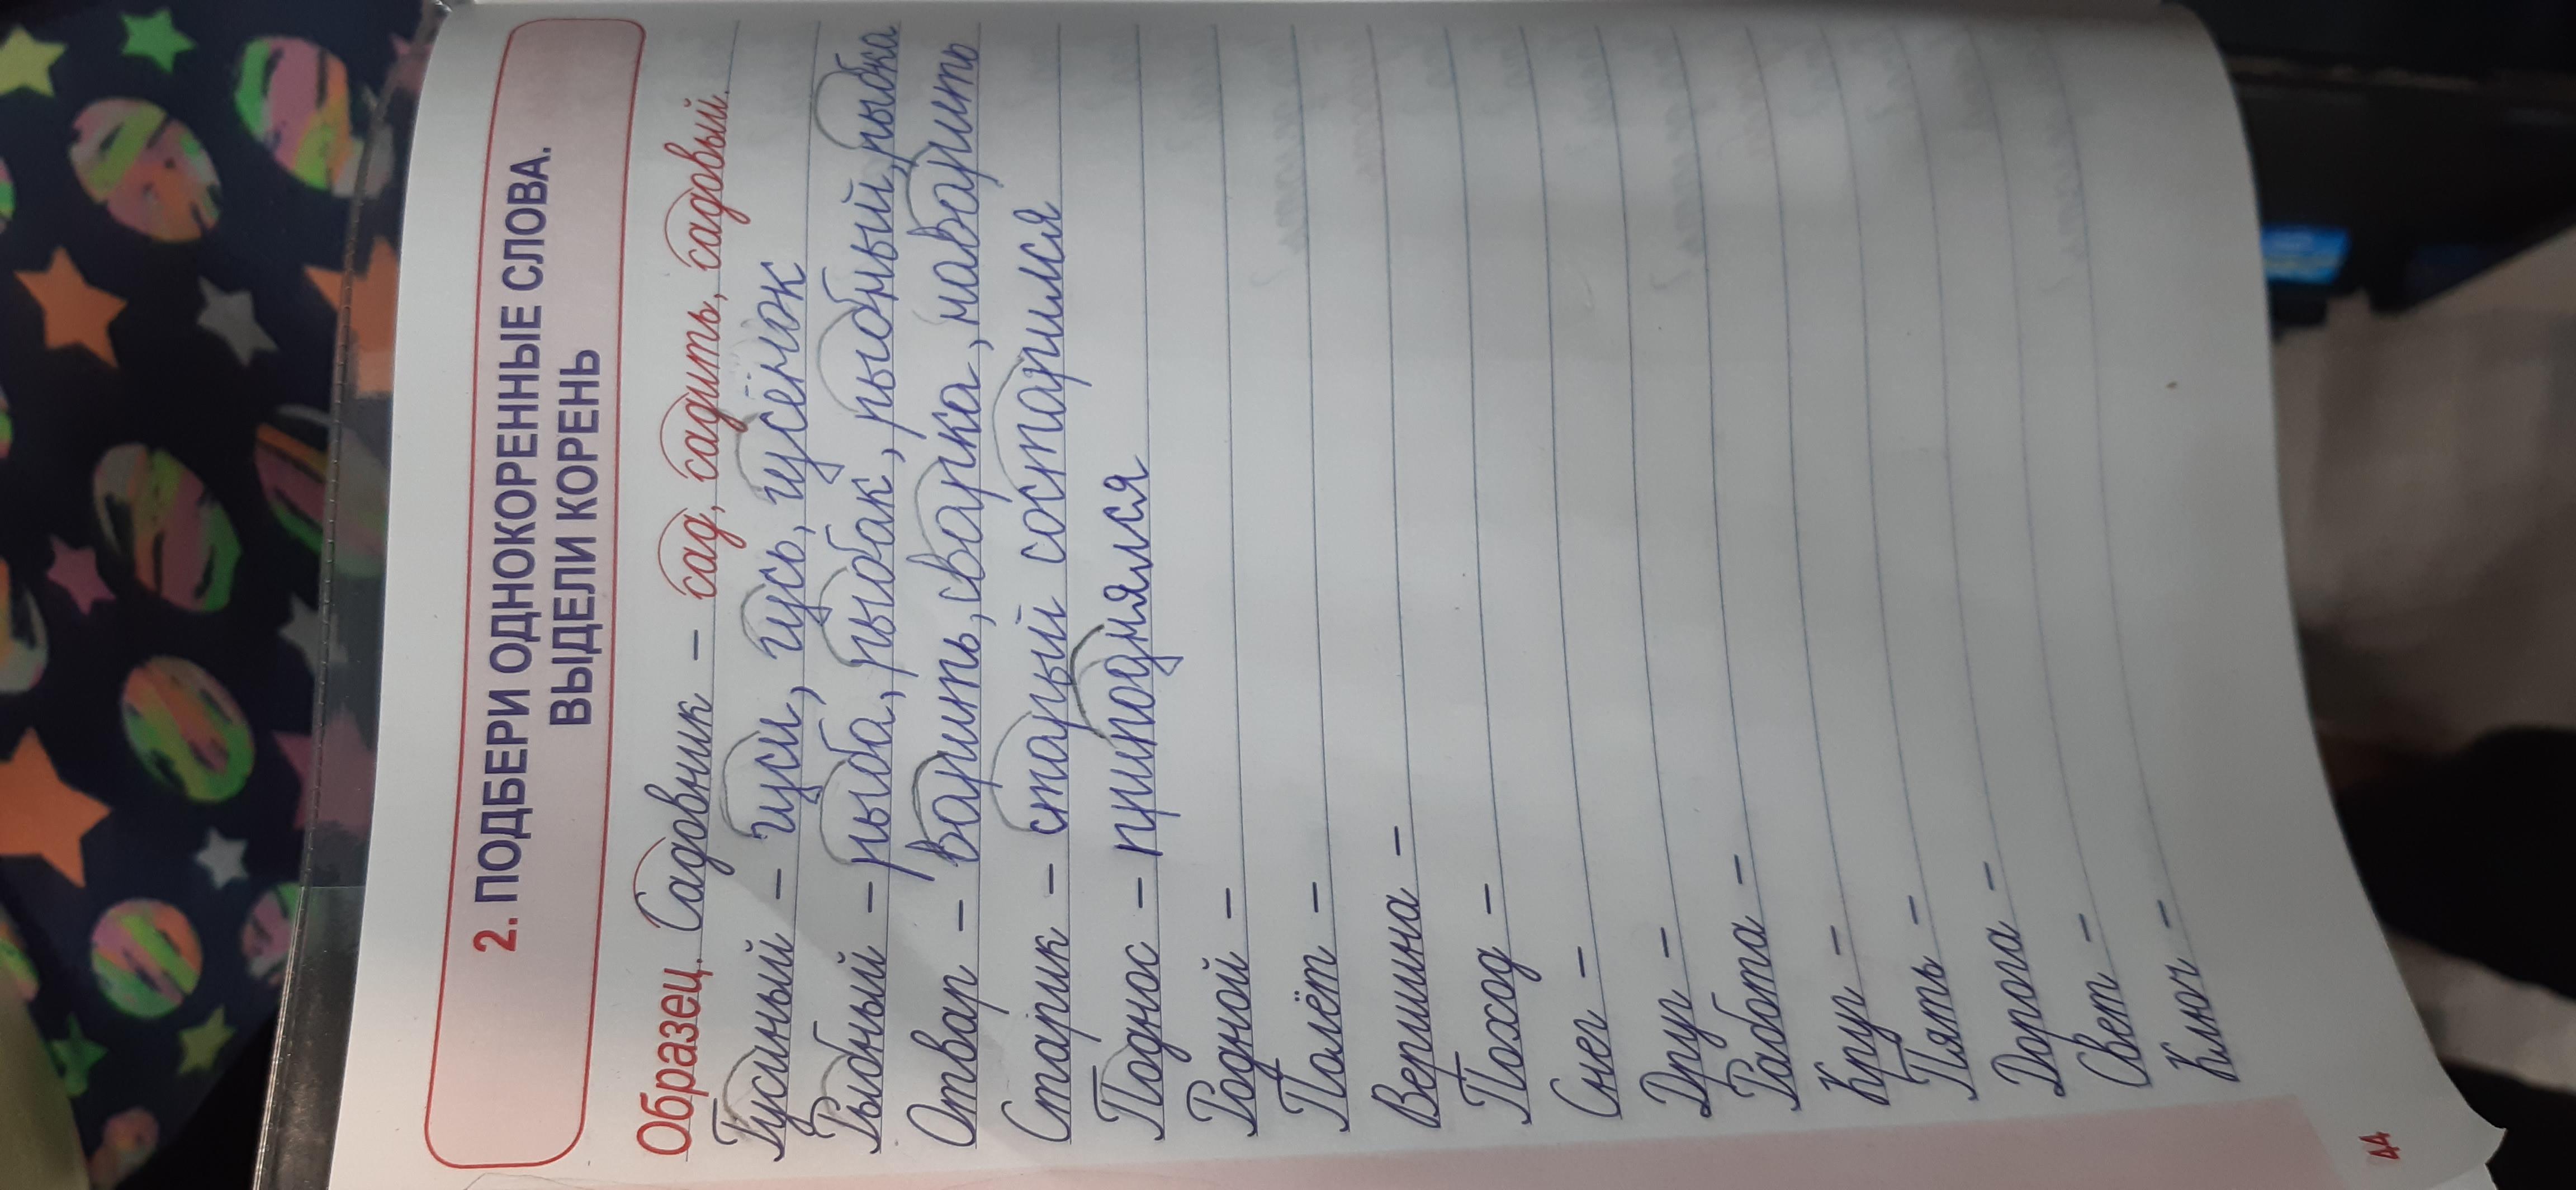 2. ПОДБЕРИ ОДНОКОРЕННЫЕ СЛОВА.
ВЫДЕЛИ КОРЕНЬ
Образец. Садовник – сад, садить, садовый.
Гусиный – гуси, гусь, гусёнок
Рыбный – рыба, рыбак, рыбный, рыбка
Отвар – варить, сварка, наварить
Старик – старый состарился
Поднос – приподнялся
Родной –
Полёт –
Вершина –
Поход –
Снег –
Друг –
Работа –
Круг –
Пять –
Дорога –
Свет –
Ключ –
44